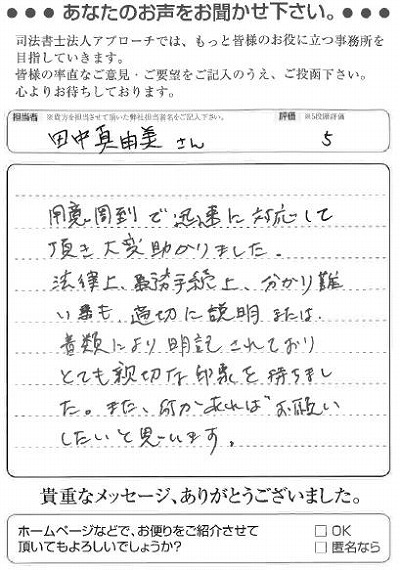 ●●● あなたのお声をお聞かせ下さい。●●●
司法書士法人アプローチでは、もっと皆様のお役に立つ事務所を
目指していきます。
皆様の率直なご意見・ご要望をご記入のうえ、ご投函下さい。
心よりお待ちしております。
担当者 ※貴方を担当させて頂いた弊社担当者名をご記入下さい。 評価 ※5段階評価
田中真由美さん 5
用意周到で迅速に対応して
頂き大変助かりました。
法律上、事務手続上、分かり難
い事も、適切に説明または
書類により明記されており
とても親切な印象を持ちまし
た。また、何かあればお願い
したいと思います。
貴重なメッセージ、ありがとうございました。
ホームページなどで、お便りをご紹介させて □ OK
頂いてもよろしいでしょうか? □ 匿名なら